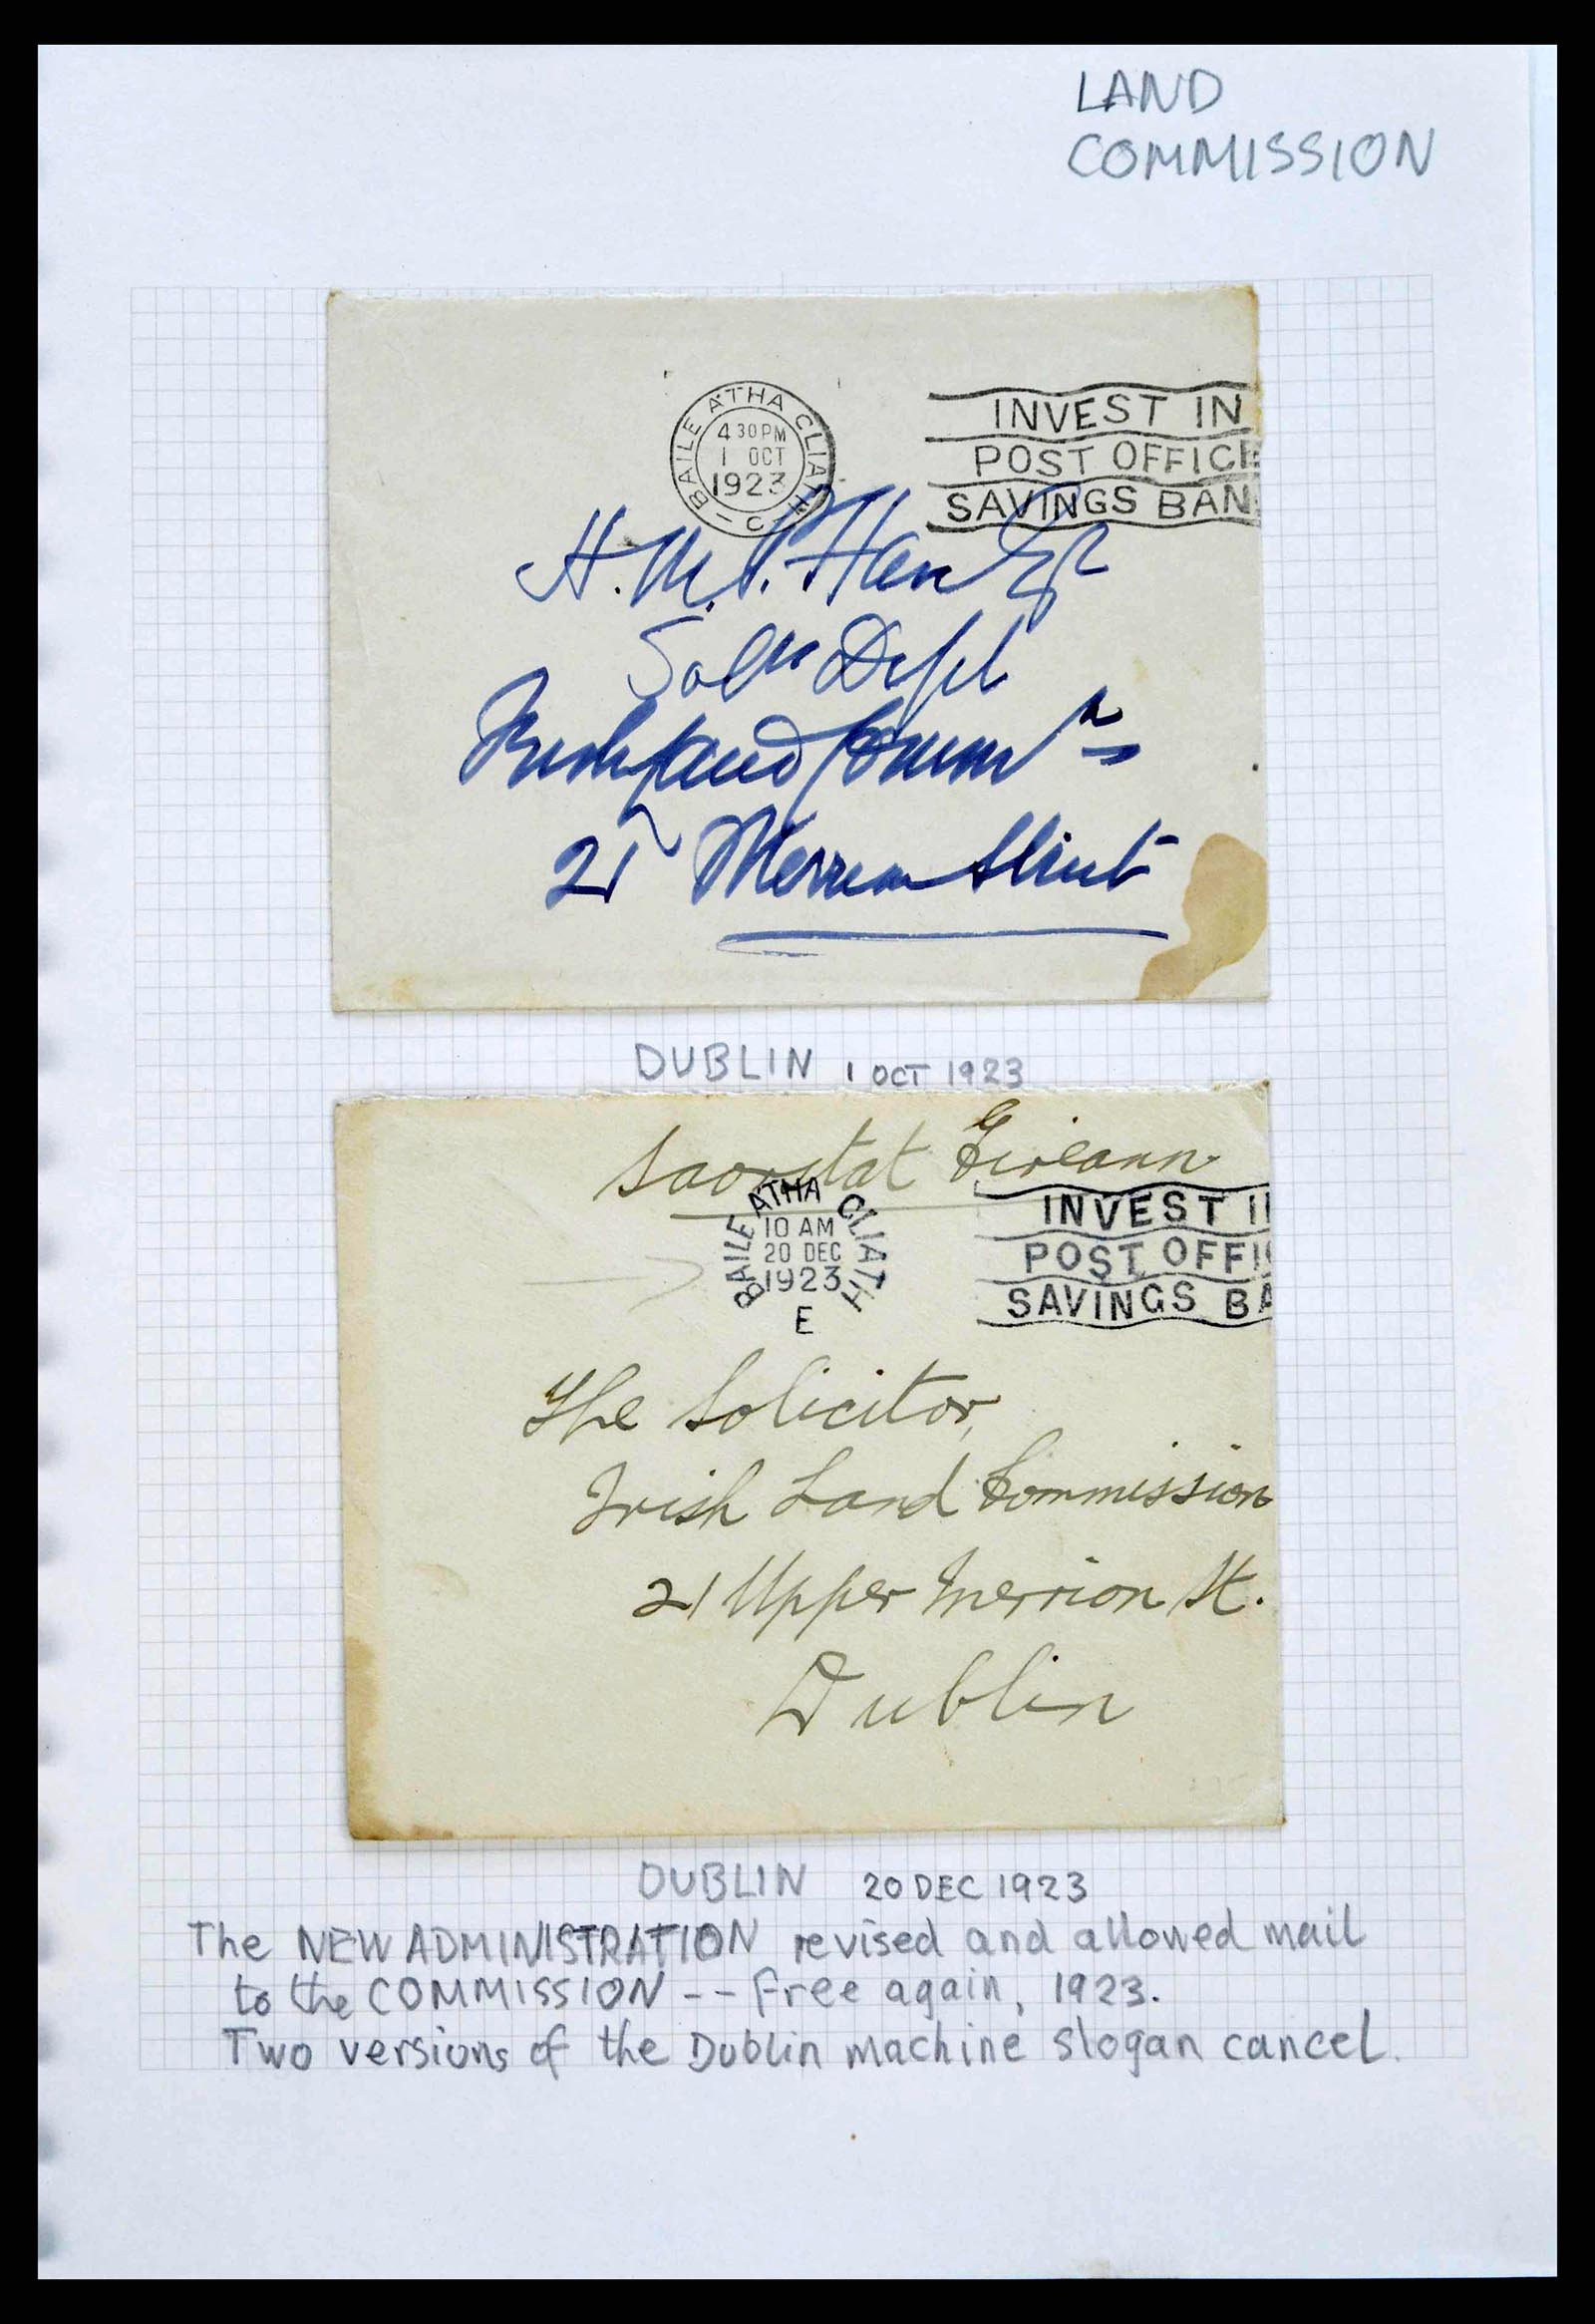 LAND
COMMISSION
BAILE ATHA CLIATH
4 30 PM
1 OCT
1923
C
INVEST IN
POST OFFICE
SAVINGS BAN
H.M.P.
Solrs Dept
Irish Land Commn
21 Merrion Street
DUBLIN 1 OCT 1923
Saorstat Eireann
BAILE ATHA CLIATH
10 AM
20 DEC
1923
E
INVEST I
POST OFFI
SAVINGS BA
The Solicitor,
Irish Land Commission
21 Upper Merrion St.
Dublin
DUBLIN 20 DEC 1923
The NEW ADMINISTRATION revised and allowed mail
to the COMMISSION -- Free again, 1923.
Two versions of the Dublin machine slogan cancel.